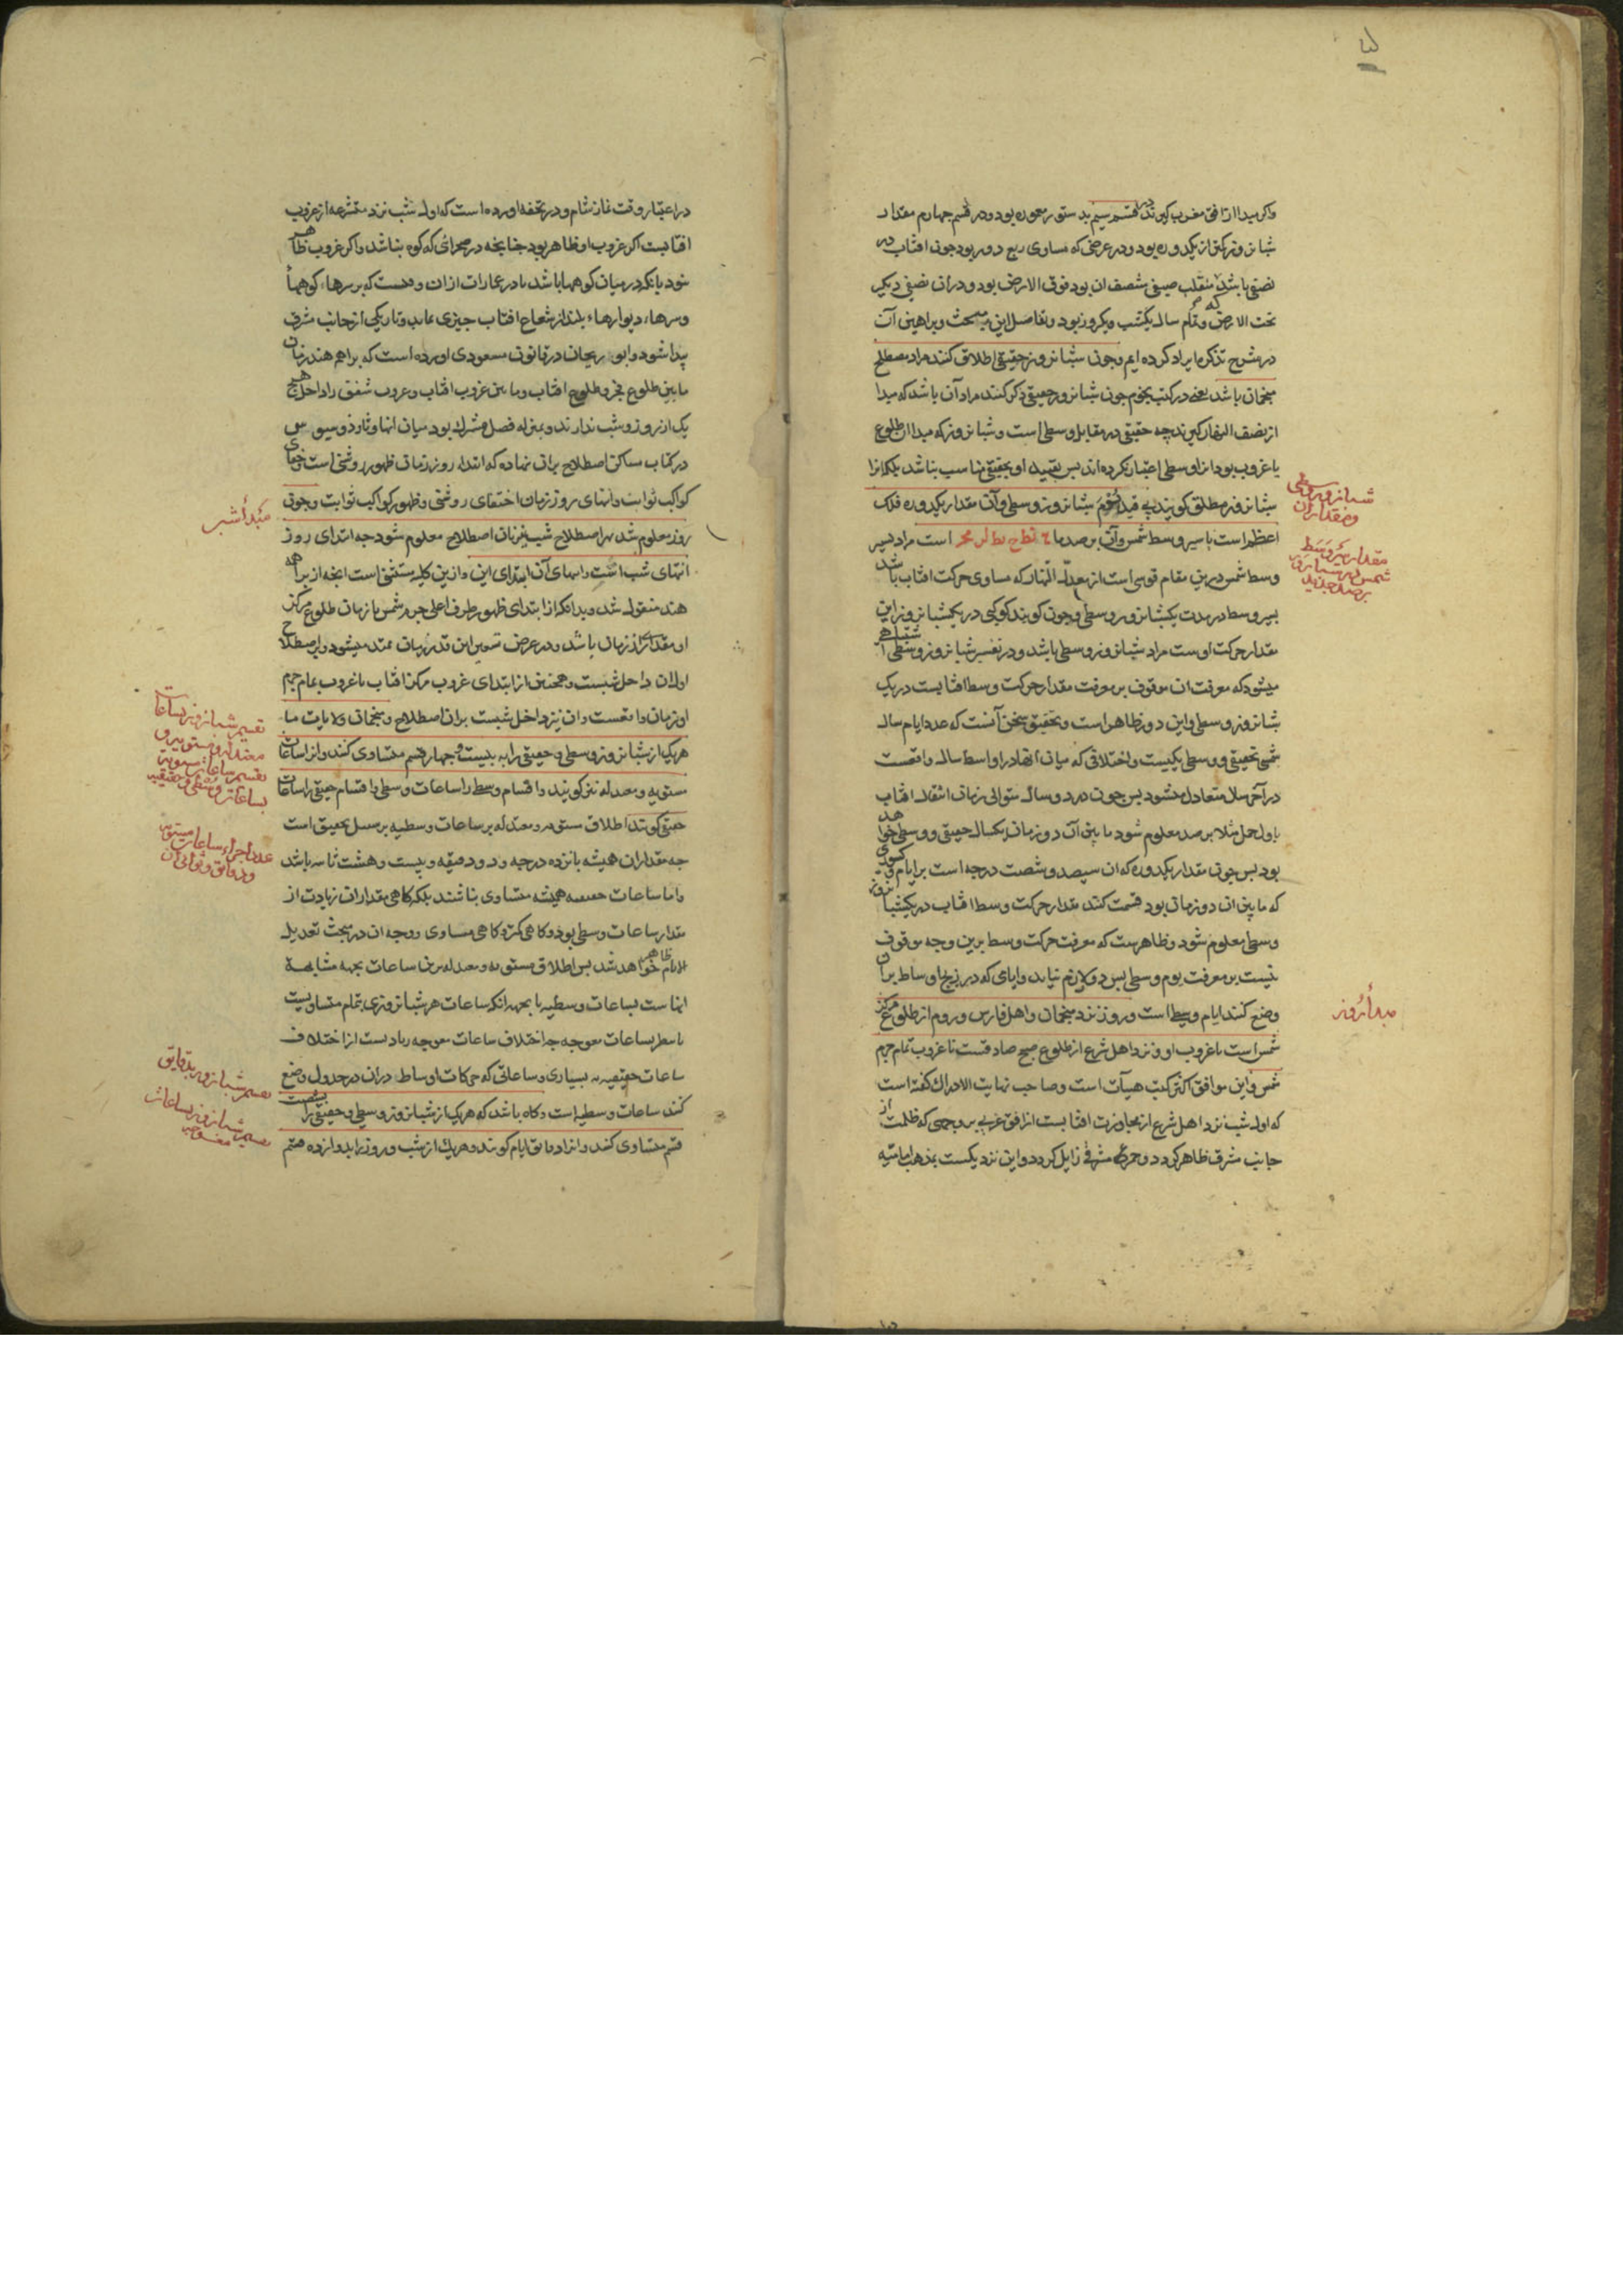 واکر مبدا از افق مغرب کیرند در قسم سیم بدستور معموره بود و در قسم چهارم مقدار
شبانروز کمتر از یکدوره بود و در عرضی که مساوی ربع دور بود جون افتاب در
نصفی باشد که منقلب صیفی منصف ان بود فوق الارض بود و در ان نصفی دیکر
تحت الارض و تمام سال یکشب و یکروز بود و تفاصیل این مبحث و براهین آن
در شرح تذکره ایراد کرده ایم و جون شبانروز حقیقی اطلاق کنند مراد مصطلح
منجمان باشد یعنی در کتب نجوم جون شبانروز حقیقی ذکر کنند مراد آن باشد که مبدا
از نصف النهار کیرند چه حقیقی در مقابل وسطی است و شبانروز که مبدا ان طلوع
یا غروب بود انرا وسطی اعتبار نکرده اند بس تقیید او بحقیقی مناسب نباشد بلکه انرا
شبانروز مطلق کویند بی قید و شبانروز وسطی و آن مقدار یکدوره فلک
اعظم است با سیر وسط شمس و آن برصد ما است مراد بسیر
وسط شمس درین مقام قوسی است از معدل النهار که مساوی حرکت افتاب باشد
بسیر وسط در مدت یکشبانروز وسطی و جون کویند کوکبی در یکشبانروز این
مقدار حرکت اوست مراد شبانروز وسطی باشد و در تفسیر شبانروز وسطی اشتباهی
میشود که معرفت ان موقوف بر معرفت مقدار حرکت وسط افتابست در یک
شبانروز وسطی و این دور ظاهر است و تحقیق سخن آنست که عدد ایام سال
شمسی حقیقی و وسطی یکیست و اختلافی که میان انها در اواسط سال واقعست
در آخر سال متعادل میشود بس جون در دو سال متوالی زمان انتقال افتاب
باول حمل مثلا برصد معلوم شود ما بین آن دو زمان یکسال حقیقی و وسطی خواهد
بود بس جون مقدار یکدوره که ان سیصد و شصت درجه است بر ایام
که ما بین ان دو زمان بود قسمت کنند مقدار حرکت وسط افتاب در یکشبانروز
وسطی معلوم شود و ظاهرست که معرفت حرکت وسط برین وجه موقوف
نیست بر معرفت یوم وسطی بس دور لازم نیاید و ایامی که در زیج اوساط بران
وضع کنند ایام وسطی است و روز نزد منجمان و اهل فارس و روم از طلوع مرکز
شمس است تا غروب او و نزد اهل شرع از طلوع صبح صادقست تا غروب تمام جرم
شمس و این موافق اکثر کتب هیآت است و صاحب نهایت الادراک کفته است
که اول شب نزد اهل شرع از مجاوزت افتابست از افق غربی بر وجهی که ظلمت از
جانب مشرق ظاهر کردد و حمرة مشرقی زایل کردد و این نزدیکست بمذهب امامیه
شبانروز وسطی
و مقدار آن
مقدار سیر وسط
شمس در شبانروز
برصد جدید
مبدأ روز
در اعتبار وقت نماز شام و در تحفه اورده است که اول شب نزد متشرعه از غروب
افتابست اکر غروب او ظاهر بود جنانجه در صحرائی که کوه نباشد و اکر غروب ظاهر
نبود بانکه در میان کوهها باشد یا در عمارات از ان وقتست که بر سرهاء کوهها
و سرهاء دیوارهاء بلند از شعاع افتاب جیزی نماند و تاریکی از جانب مشرق
پیدا شود و ابو ریحان در قانون مسعودی اورده است که براهم هند زمان
ما بین طلوع فجر و طلوع افتاب و ما بین غروب افتاب و غروب شفق را داخل هیچ
یک از روز و شب ندارند و بمنزله فصل مشترک بود میان انها و ثاوذوسیوس
در کتاب مساکن اصطلاح بران نهاده که ابتداء روز زمان ظهور روشنی است و خفای
کواکب ثوابت و انتهای روز زمان اختفای روشنی و ظهور کواکب ثوابت و جون
روز معلوم شد بهر اصطلاح شب نیز بان اصطلاح معلوم شود جه ابتدای روز
انتهای شب است و انتهای آن ابتدای این و ازین کلیه مستثنی است انجه از براهمه
هند منقول شد و بدانکه از ابتدای ظهور طرف اعلی جرم شمس تا زمان طلوع مرکز
او مقداری از زمان باشد و در عرض تسعین این قدر زمان ممتد میشود و بر اصطلاح
اول ان داخل شبست و همجنین از ابتدای غروب مرکز افتاب تا غروب تمام جرم
او زمان واقعست و ان نیز داخل شبست بران اصطلاح و منجمان ولایات ما
هر یک از شبانروز وسطی و حقیقی را به بیست و جهار قسم متساوی کنند و انرا ساعات
مستویه و معتدله نیز کویند و اقسام وسطی را ساعات وسطی و اقسام حقیقی را ساعات
حقیقی کویند اطلاق مستویه و معتدله بر ساعات وسطیه بر سبیل تحقیق است
جه مقدار ان همیشه بانزده درجه و دو دقیقه و بیست و هشت ثانیه باشد
و اما ساعات حقیقیه همیشه متساوی نباشند بلکه کاهی مقدار ان زیادت از
مقدار ساعات وسطی بود و کاهی کمتر و کاهی مساوی و وجه ان در مبحث تعدیل
الایام ظاهر خواهد شد بس اطلاق مستویه و معتدله برین ساعات بجهة مشابهة
انهاست بساعات وسطیه یا بجهة انکه ساعات هر شبانروزی بتمام متساویست
یا بنظر بساعات معوجه جه اختلاف ساعات معوجه زیادست از اختلاف
ساعات حقیقیه به بسیاری و ساعاتی که حرکات اوساط در ان در جدول وضع
کنند ساعات وسطیه است و کاه باشد که هر یک از شبانروز وسطی و حقیقی را بشصت
قسم متساوی کنند و انرا دقایق ایام کویند و هر یک از شب و روز را بدوازده قسم
مبدأ شب
تقسیم شبانروز بساعات
معتدله و مستویه و
تقسیم ساعات مستویه
بساعات وسطی و حقیقیه
عدد اجزاء ساعات مستویه
و دقایق و ثوانی آن
تقسیم شبانروز بدقایق
تقسیم شبانروز بساعات
معوجه